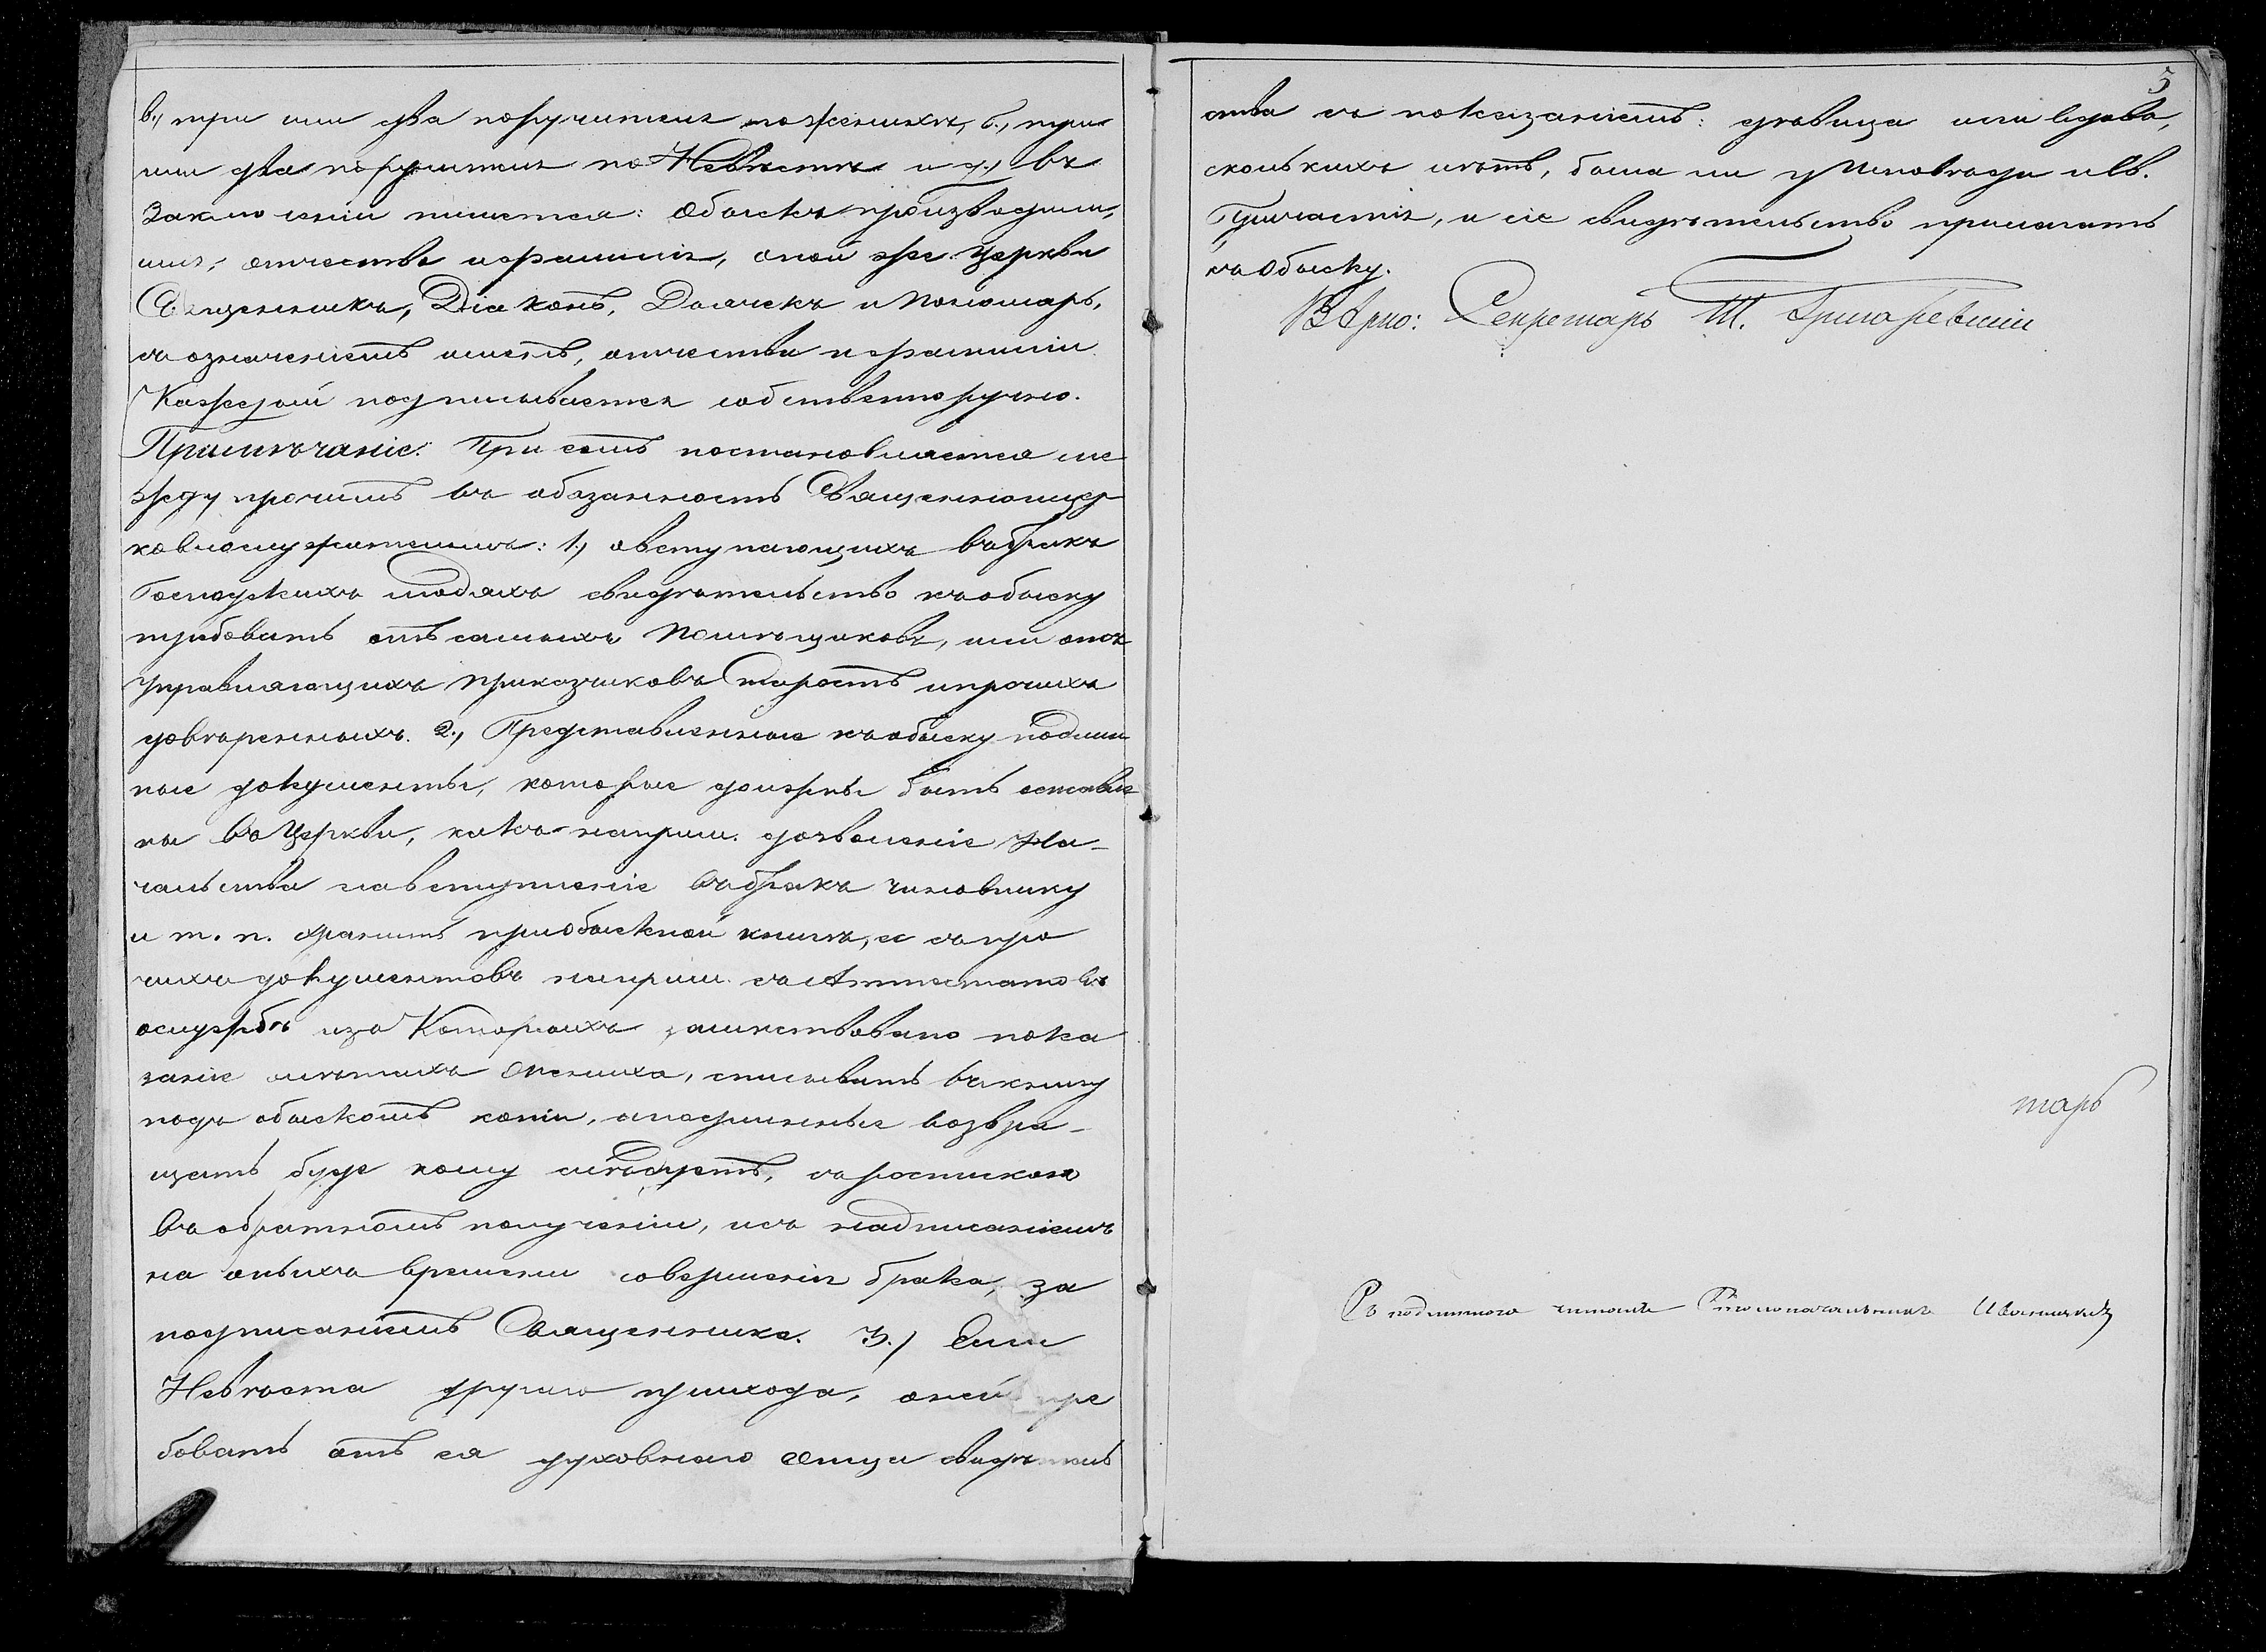 в., три или два поручителя по женихѣ, б., три
или два поручителя по Невѣстѣ и г., въ
Заключеніи пишется: Обыскъ производили,
имя, отчество и фамилія, оной же Церкви
Священникъ, Діаконъ, Дьячекъ и Пономарь,
съ означеніемъ именъ, отчества и фамиліи
Каждый подписывается собственноручно.
Примѣчаніе: При семъ постановляется ме
жду прочимъ въ обязанность Священноцер
ковнослужителямъ: 1., о вступающихъ въ бракъ
Господскихъ людяхъ свидѣтельство къ обыску
требовать отъ самыхъ Помѣщиковъ, или отъ
управляющихъ Приказчиковъ Старостъ и прочихъ
довѣренныхъ. 2., Представленные къ обыску подлин
ные документы, которые должны быть оставле
ны въ Церкви, какъ наприм. дозволеніе На-
чальства на вступленіе въ бракъ чиновнику
и т. п. хранить при обыскной книгѣ, а съ про
чихъ документовъ наприм. съ Аттестатовъ
о службѣ изъ Которыхъ заимствовано пока
заніе о лѣтахъ Жениха, списывать въ книгу
подъ обыскомъ копіи, а подлинные возвра-
щать буде кому слѣдуетъ, съ роспискою
въ обратномъ полученіи, и съ надписаніемъ
на оныхъ времени совершенія брака, за
подписаніемъ Священника. 3.) Если
Невѣста другаго прихода, о ней тре
бовать отъ ея духовнаго Отца свидѣтель
5
ства съ показаніемъ: дѣвица или вдова,
сколькихъ лѣтъ, была ли у Исповѣди и Св.
Причастія, и сіе свидѣтельство прилагать
къ Обыску.
Вѣрно: Секретарь Т. Григоревскій
тарь
Съ подлиннаго читалъ Столоначальникъ Иваницкій